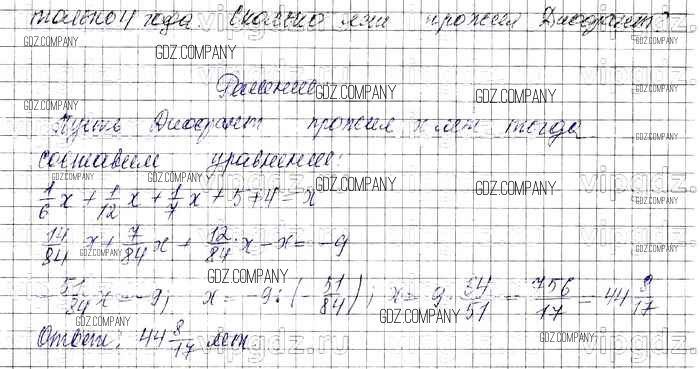 только 4 года. Сколько лет прожил Диофант?
Решение
Пусть Диофант прожил x лет тогда
составим уравнение:
1/6 x + 1/12 x + 1/7 x + 5 + 4 = x
14/84 x + 7/84 x + 12/84 · x − x = −9
−51/84 x = −9; x = −9 : (−51/84); x = 9 · 84/51 = 756/17 = 44 8/17
Ответ: 44 8/17 лет
GDZ.COMPANY
vipgdz.ru